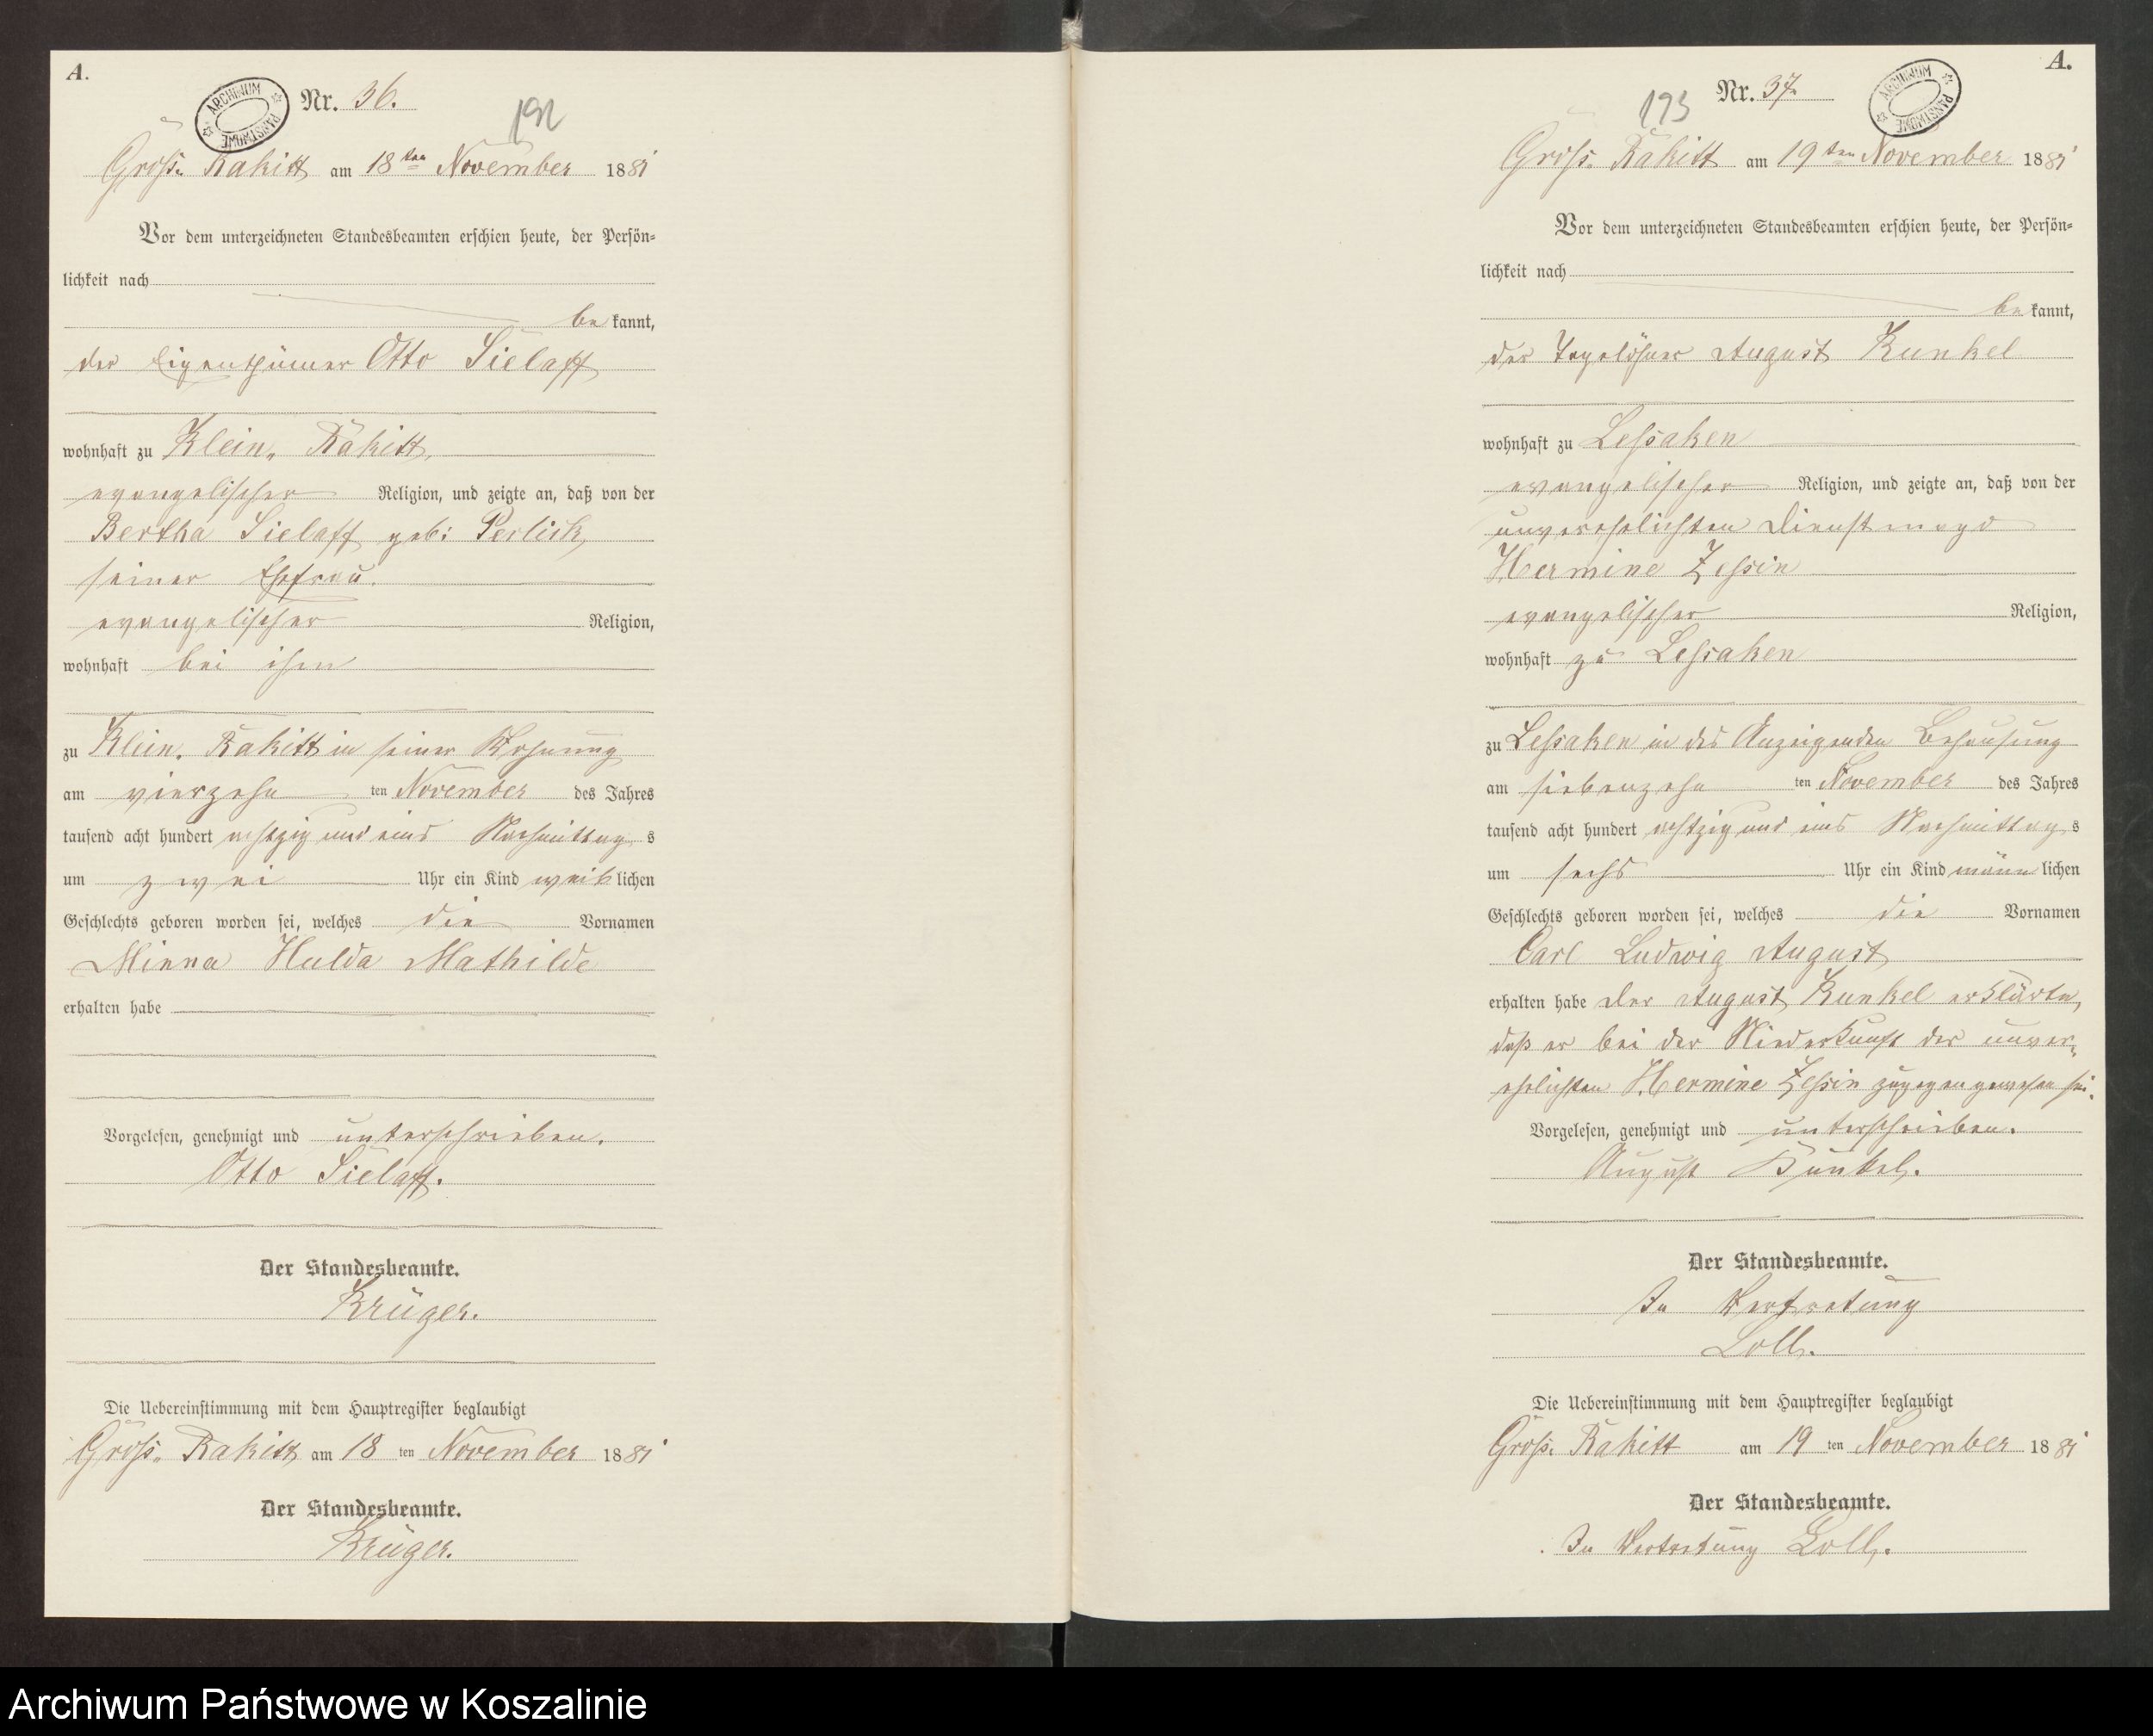 A.
ARCHIWUM PAŃSTWOWE
Nr. 36.
192
Groß. Rakitt am 18ten November 1881
Vor dem unterzeichneten Standesbeamten erschien heute, der Persön=
lichkeit nach
be kannt,
der Eigenthümer Otto Sielaff
wohnhaft zu Klein. Rakitt,
evangelischer Religion, und zeigte an, daß von der
Bertha Sielaff geb: Perlick,
seiner Ehefrau.
evangelischer Religion,
wohnhaft bei ihm
zu Klein. Rakitt in seiner Wohnung
am vierzehn ten November des Jahres
tausend acht hundert achtzig und eins Nachmittag s
um zwei Uhr ein Kind weib lichen
Geschlechts geboren worden sei, welches die Vornamen
Minna Hulda Mathilde
erhalten habe
Vorgelesen, genehmigt und unterschrieben.
Otto Sielaff.
Der Standesbeamte.
Krüger.
Die Uebereinstimmung mit dem Hauptregister beglaubigt
Groß. Rakitt am 18 ten November 1881
Der Standesbeamte.
Krüger.
A.
ARCHIWUM PAŃSTWOWE
Nr. 37.
193
Groß. Rakitt am 19ten November 1881
Vor dem unterzeichneten Standesbeamten erschien heute, der Persön=
lichkeit nach
be kannt,
der Tagelöhner August Kunkel
wohnhaft zu Leßaken
evangelischer Religion, und zeigte an, daß von der
unverehelichten Dienstmagd
Hermine Zessin
evangelischer Religion,
wohnhaft zu Leßaken
zu Leßaken in des Anzeigenden Behausung
am siebenzehn ten November des Jahres
tausend acht hundert achtzig und eins Nachmittag s
um sechs Uhr ein Kind männ lichen
Geschlechts geboren worden sei, welches die Vornamen
Carl Ludwig August
erhalten habe Der August Kunkel erklärte,
daß er bei der Niederkunft der unver=
ehelichten Hermine Zessin zugegen gewesen sei.
Vorgelesen, genehmigt und unterschrieben.
August Kunkel.
Der Standesbeamte.
In Vertretung
Loll.
Die Uebereinstimmung mit dem Hauptregister beglaubigt
Groß. Rakitt am 19 ten November 1881
Der Standesbeamte.
In Vertretung Loll.
Archiwum Państwowe w Koszalinie